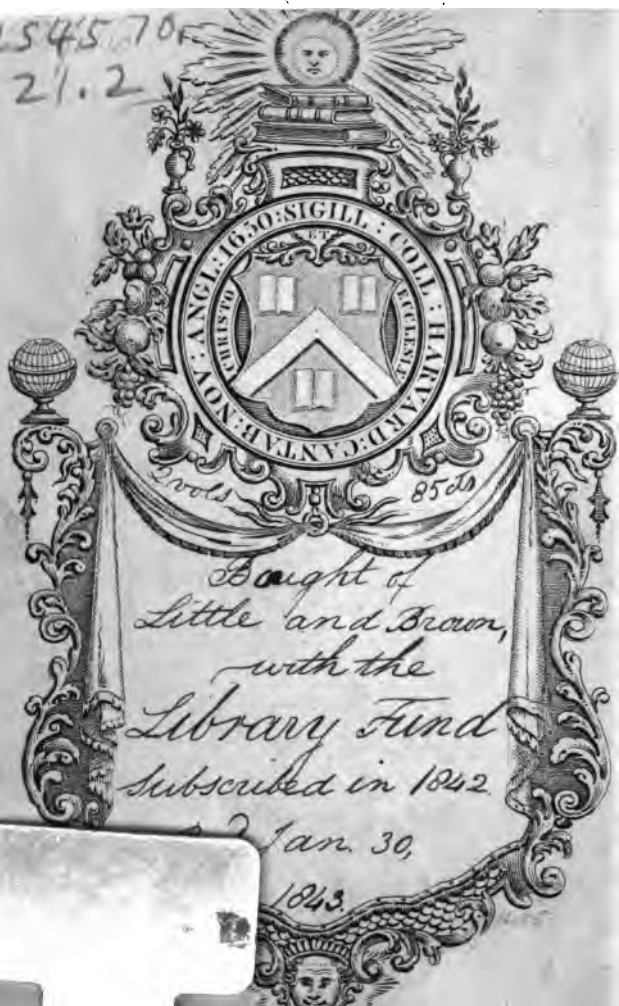 21.2
SIGILL : COLL : HARVARD : CANTAB : NOV : ANGL : 1650 :
ET
CHRISTO
ECCLESIÆ
2 vols
85 cts
Bought of
Little and Brown,
with the
Library Fund
Subscribed in 1842
Jan. 30,
1843.